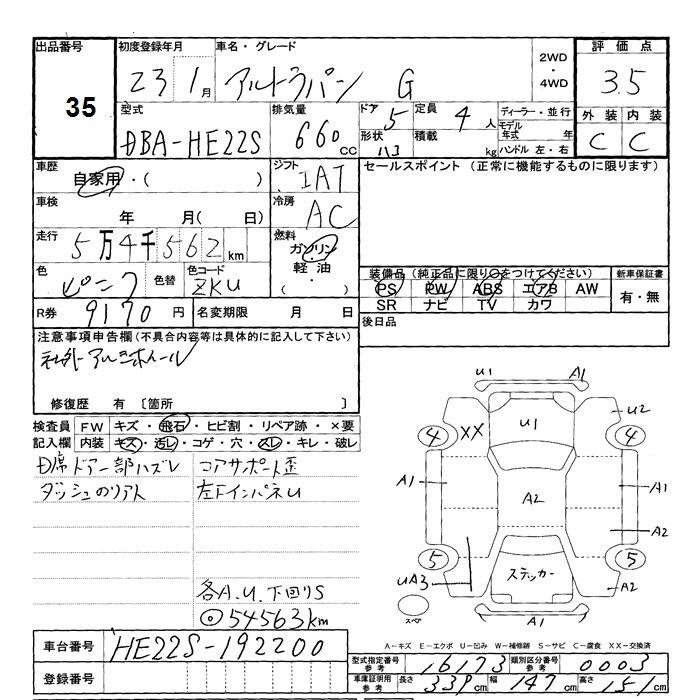 出品番号 初度登録年月 車名・グレード 2WD・4WD 評価点
35 23 1月 アルトラパン G 3.5
型式 排気量 ドア 5 定員 4人 ディーラー・並行 外装 内装
DBA-HE22S 660cc 形状 積載 kg モデル年式 年 C C
ハンドル 左・右
車歴 自家用・( ) シフト IAT セールスポイント (正常に機能するものに限ります)
車検 年 月( 日) 冷房 AC
走行 5万4千562km 燃料 ガソリン・軽油・( )
色 ピンク 色替 色コード ZKU 装備品 (純正品に限り○をつけてください) 新車保証書
PS PW ABS エアB AW 有・無
SR ナビ TV カワ
R券 9170円 名変期限 月 日 後日品
注意事項申告欄(不具合内容等は具体的に記入して下さい)
社外アルミホイール
修復歴 有 〔箇所 〕
検査員 FW キズ・飛石・ヒビ割・リペア跡・×要
記入欄 内装 キズ・汚レ・コゲ・穴・スレ・キレ・破レ
ドアー部ハズレ コアサポート歪
左下インパネU
各A.U.下回りS
◎54563km
U1 A1
U1 U2
4 XX 4
A1 A2 A1
A2
5 5
UA3 ステッカー A2
スペア A1
車台番号 HE22S-192200
A-キズ E-エクボ U-凹み W-補修跡 S-サビ C-腐食 XX-交換済
登録番号 型式指定番号 参考 16173 類別区分番号 参考 0003
車庫証明用 参考 長さ 339cm 幅 147cm 高さ 151cm